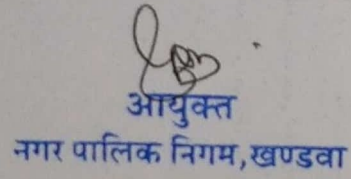 आयुक्त
नगर पालिक निगम,खण्डवा